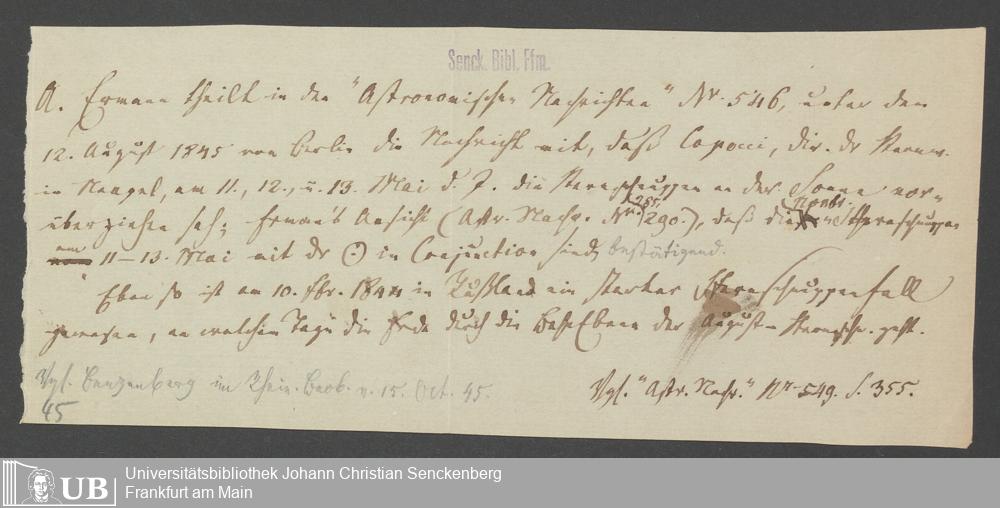 Senck. Bibl. Ffm.
A. Erman theilt in den "Astronomischen Nachrichten" Nr. 546, unter dem
12. August 1845 von Berlin die Nachricht mit, daß Capocci, Dir. dr Sternw.
in Neapel, am 11., 12., u. 13. Mai d. J. die Sternschnuppen an der Sonne vor=
285.
Novbr.
überziehen sah; Erman's Ansicht (Astr. Nachr. Nr. 290.), daß die Sternschnuppen
am
11–13. Mai mit dr ⊙ in Conjunction sind, bestätigend.
Eben so ist am 10. Fbr. 1844 in Rußland ein starker Sternschnuppenfall
gewesen, an welchem Tage die Erde durch die der August= Sternschn. geht.
Vgl. Benzenberg im Rhein. Beob. v. 15. Oct. 45.
Vgl. "Astr. Nachr." Nr. 549. S. 355.
45
UB
Universitätsbibliothek Johann Christian Senckenberg
Frankfurt am Main